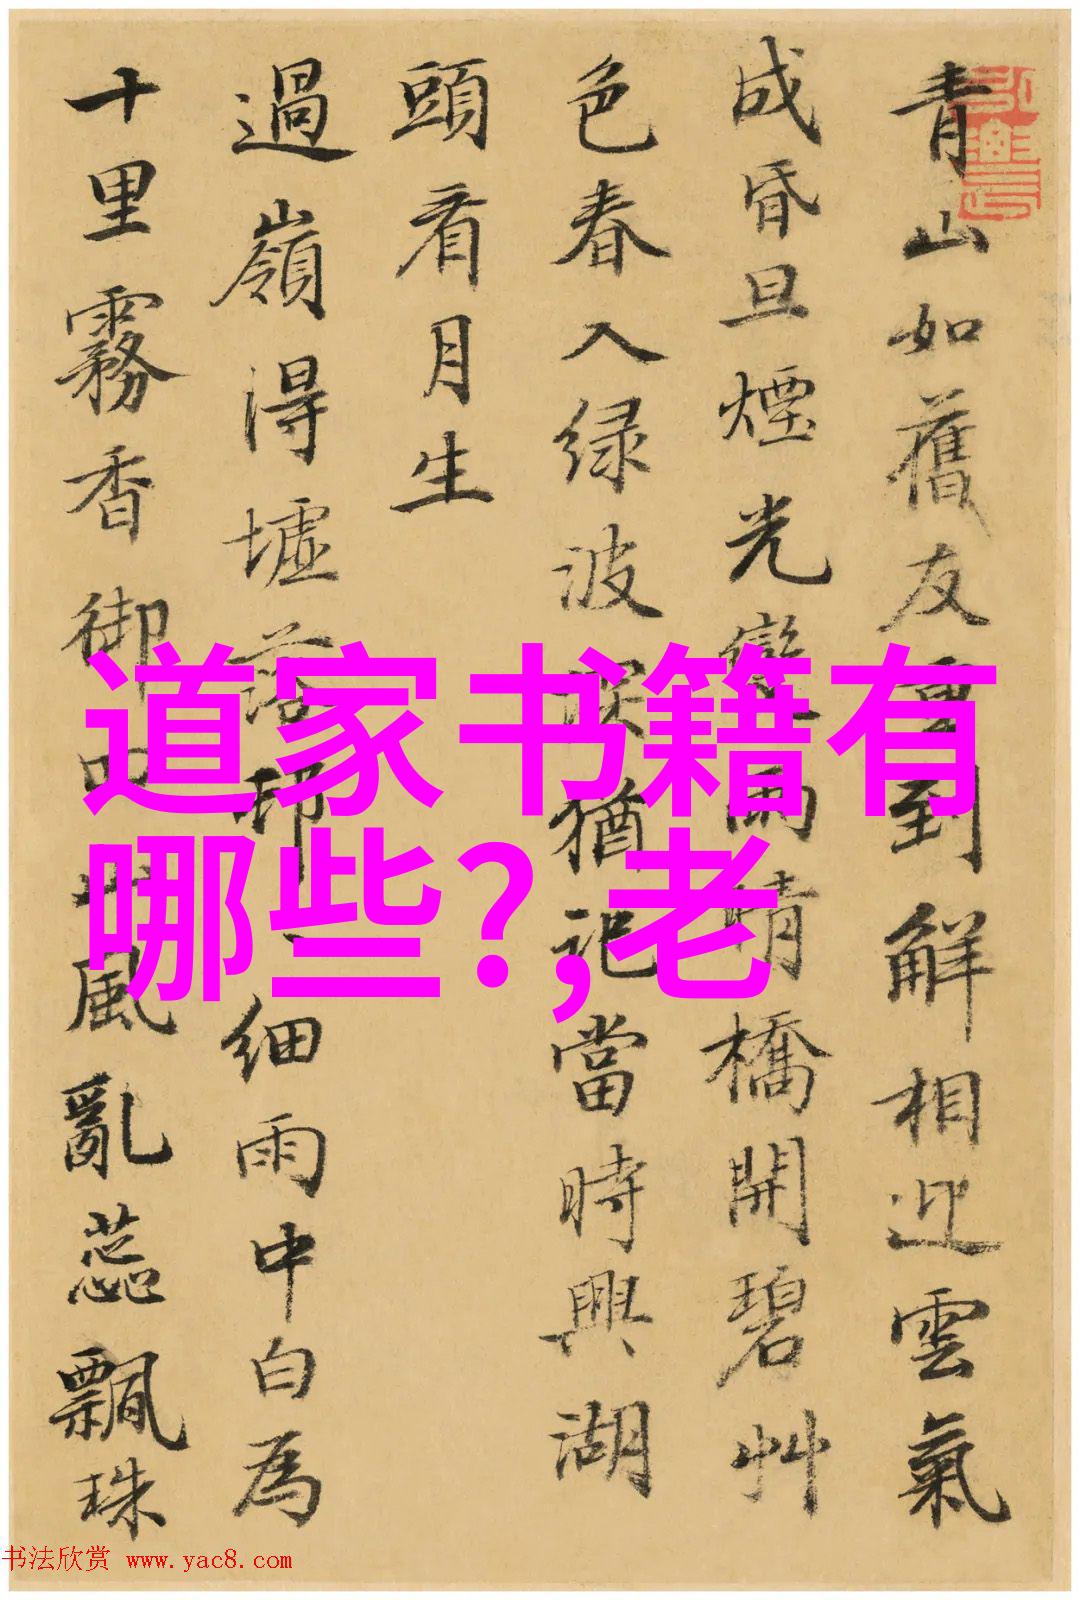 青山如舊友重到解相迎雲氣
成昏旦煙光變雨晴橋開碧艸
色春入緑波猶記當時興湖
頭看月生
過嶺得墟落邨細雨中白為
十里霧香御風亂蕊飄珠
道家书籍有
哪些?,老
书法欣赏 www.yac8.com